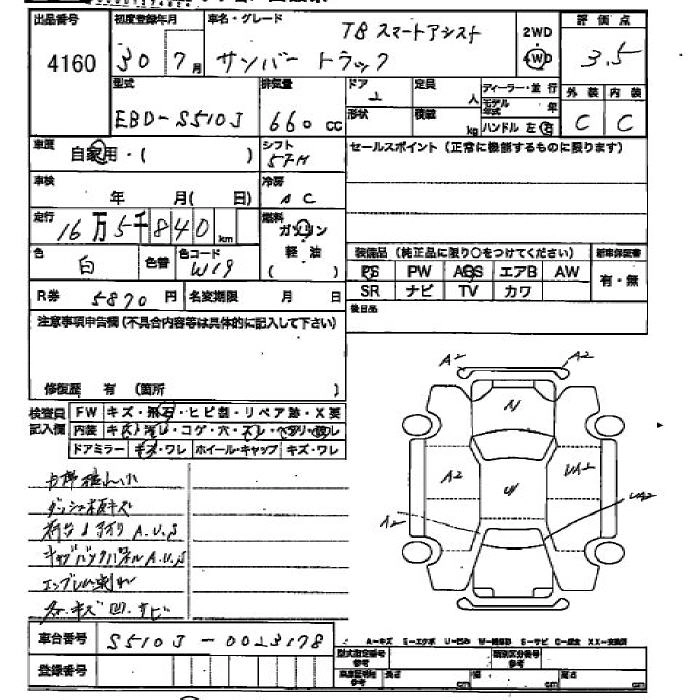 出品番号 初度登録年月 車名・グレード TB スマートアシスト 2WD 評価点
4160 30 7月 サンバートラック 4WD 3.5
型式 排気量 ドア 定員 人 ディーラー・並行 外装 内装
EBD-S510J 660cc 2 形状 積載 kg モデル年式 年 ハンドル 左 右 C C
車歴 自家用・( ) シフト 5FM セールスポイント(正常に機能するものに限ります)
車検 年 月( 日) 冷房 AC
走行 16万5千840km 燃料 ガソリン 軽油 ( )
装備品(純正品に限り○をつけてください) 新車保証書
色 白 色替 色コード W19
PS PW ABS エアB AW 有・無
SR ナビ TV カワ
R券 5870円 名変期限 月 日
後日品
注意事項申告欄(不具合内容等は具体的に記入して下さい)
修復歴 有 (箇所 )
検査員記入欄 FW キズ・飛石・ヒビ割・リペア跡・X要
内装 キズ・汚レ・コゲ・穴・スレ・ヘタリ・ワレ
ドアミラー キズ・ワレ ホイール・キャップ キズ・ワレ
A2 A2
A2 UA2
A2 UA2
ダッシュ板キズ
荷台 A.U.S
キャブバックパネル A.U.S
エンブレム剥れ
キズ 凹 サビ
車台番号 S510J-0023178
A-キズ E-エクボ U-凹み S-サビ XX-交換済
登録番号
型式指定番号 参考 類別区分番号 参考
長さ cm 幅 cm 高さ cm